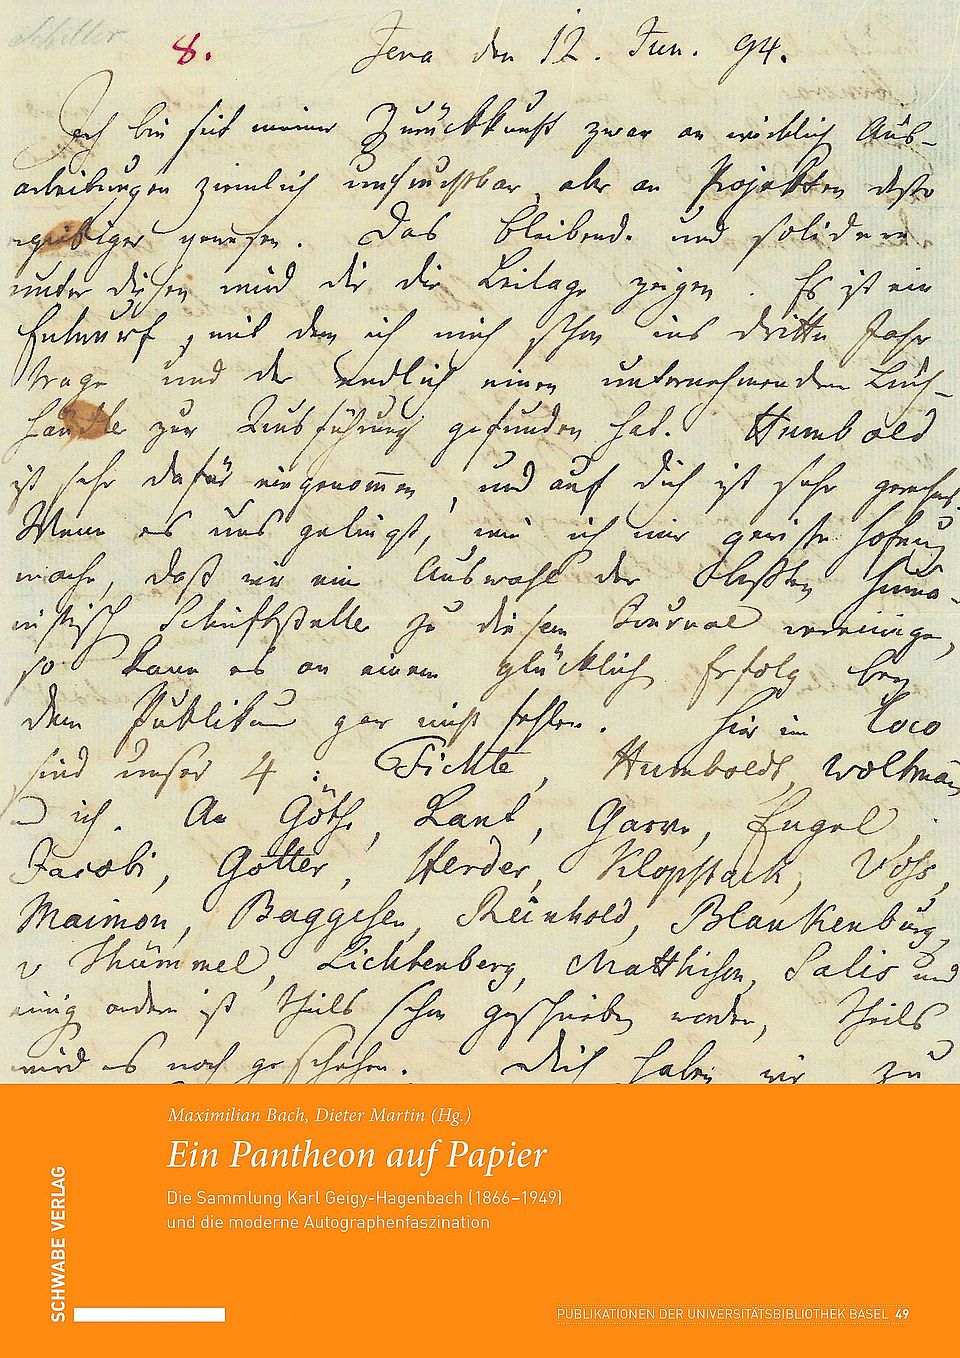 Schiller
8.
Jena den 12. Jun. 94.
Ich bin seit meiner Zurückkunft zwar an wirklichen Aus-
arbeitungen ziemlich unfruchtbar, aber an Projekten desto
gewesen. Das bleibende und solidere
unter diesen wird dir die Beilage zeigen. Es ist ein
Entwurf, mit dem ich mich schon ins dritte Jahr
trage und der endlich einen unternehmenden Buch-
händler zur Ausführung gefunden hat. Humbold
ist sehr dafür eingenommen, und auf dich ist sehr gerechnet.
Wenn es uns gelingt, wie ich mir gewisse Hofnung
mache, daß wir eine Auswahl der beßten huma-
nistischen Schriftsteller zu diesem Journal vereinigen,
so kann es an einem glücklichen Erfolg bey
dem Publikum gar nicht fehlen. Hier in Loco
sind unser 4: Fichte, Humboldt, Woltmann
ich. An Göthe, Kant, Garve, Engel,
Jacobi, Gotter, Herder, Klopstock, Voss,
Maimon, Baggesen, Reinhold, Blankenburg,
v Thümmel, Lichtenberg, Matthison, Salis und
einige andere ist theils schon geschrieben worden, theils
wird es noch geschehen. Dich haben wir zu
Maximilian Bach, Dieter Martin (Hg.)
Ein Pantheon auf Papier
Die Sammlung Karl Geigy-Hagenbach (1866–1949)
und die moderne Autographenfaszination
SCHWABE VERLAG
PUBLIKATIONEN DER UNIVERSITÄTSBIBLIOTHEK BASEL 49